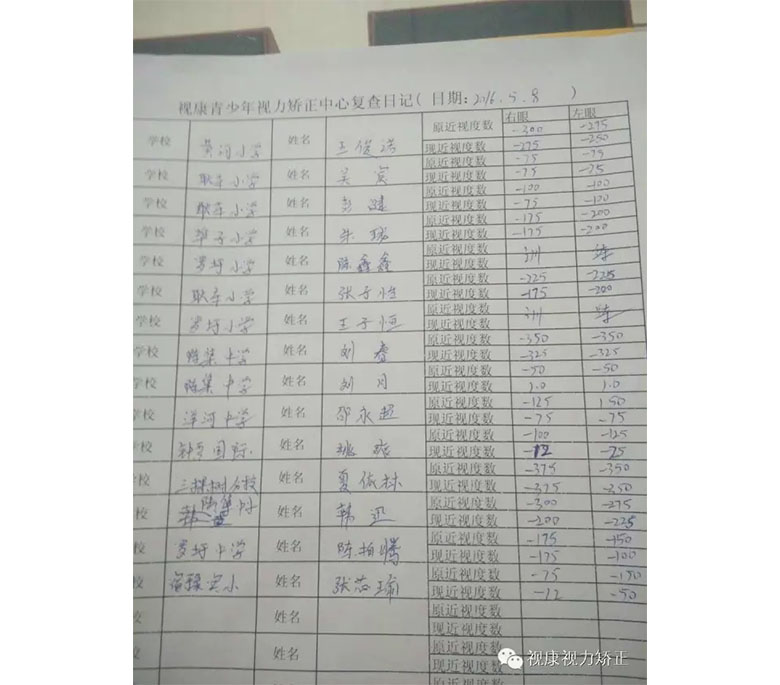 视康青少年视力矫正中心复查日记( 日期: 2016.5.8 )
学校 黄河小学 姓名 王俊诺 原近视度数 右眼 -300 左眼 -275
现近视度数 -275 -250
学校 耿车小学 姓名 吴宾 原近视度数 -75 -75
现近视度数 -75 -25
学校 耿车小学 姓名 彭健 原近视度数 -100 -100
现近视度数 -75 -100
学校 小学 姓名 朱 原近视度数 -175 -200
现近视度数 -175 -200
学校 罗圩小学 姓名 陈鑫鑫 原近视度数
现近视度数 训 练
学校 耿车小学 姓名 张子恒 原近视度数 -225 -225
现近视度数 -175 -200
学校 罗圩小学 姓名 王子恒 原近视度数
现近视度数 训 练
学校 中学 姓名 刘睿 原近视度数 -350 -350
现近视度数 -325 -325
学校 中学 姓名 刘月 原近视度数 -50 -50
现近视度数 1.0 1.0
校 洋河中学 姓名 邵永超 原近视度数 -125 150
现近视度数 -75 -75
校 钟吾国际 姓名 原近视度数 -100 -125
现近视度数 -12 -25
校 三棵树 姓名 夏依林 原近视度数 -375 -350
现近视度数 -375 -350
校 姓名 韩迅 原近视度数 -300 -275
现近视度数 -200 -225
校 罗圩中学 姓名 陈柏 原近视度数 -175 -150
现近视度数 -175 -100
校 实小 姓名 张芯瑜 原近视度数 -75 -150
现近视度数 -12 -50
校 姓名 原近视度数
现近视度数
校 姓名 原近视度数
现近视度数
视康视力矫正